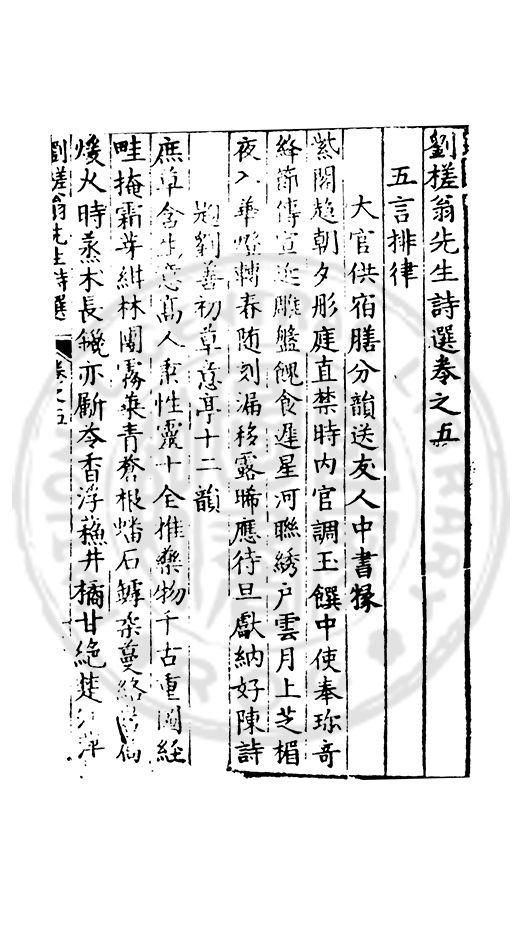 劉槎翁先生詩選卷之五
五言排律
大官供宿膳分韻送友人中書掾
紫閣趍朝夕彤庭直禁時内官調玉饌中使奉珎竒
絳節傳宣近雕盤餽食遲星河聯綉户雲月上芝楣
夜入華燈轉春随刻漏移露晞應待旦獻納好陳詩
題劉善初草意亭十二韻
庶草含生意高人秉性靈十全推藥物千古重圖經
畦掩霜芽紺林開霧葉青蒼根蟠石罅柔蔓絡
煖火時蒸木長鑱亦斸苓香浮蘓井橘甘絶楚江萍
劉槎翁先生詩選 卷之五